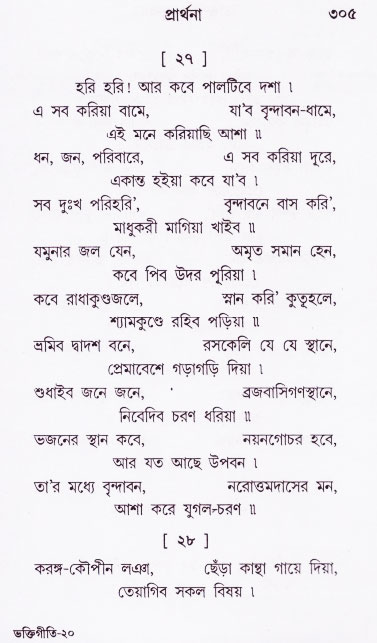 প্রার্থনা ৩০৫
[ ২৭ ]
হরি হরি! আর কবে পালটিবে দশা ৷
এ সব করিয়া বামে, যা'ব বৃন্দাবন-ধামে,
এই মনে করিয়াছি আশা ॥
ধন, জন, পরিবারে, এ সব করিয়া দূরে,
একান্ত হইয়া কবে যা'ব ৷
সব দুঃখ পরিহরি', বৃন্দাবনে বাস করি',
মাধুকরী মাগিয়া খাইব ॥
যমুনার জল যেন, অমৃত সমান হেন,
কবে পিব উদর পূরিয়া ৷
কবে রাধাকুণ্ডজলে, স্নান করি' কুতূহলে,
শ্যামকুণ্ডে রহিব পড়িয়া ॥
ভ্রমিব দ্বাদশ বনে, রসকেলি যে যে স্থানে,
প্রেমাবেশে গড়াগড়ি দিয়া ৷
শুধাইব জনে জনে, ব্রজবাসিগণস্থানে,
নিবেদিব চরণ ধরিয়া ॥
ভজনের স্থান কবে, নয়নগোচর হবে,
আর যত আছে উপবন ৷
তা'র মধ্যে বৃন্দাবন, নরোত্তমদাসের মন,
আশা করে যুগল-চরণ ॥
[ ২৮ ]
করঙ্গ-কৌপীন লঞা, ছেঁড়া কান্থা গায়ে দিয়া,
তেয়াগিব সকল বিষয় ৷
ভক্তিগীতি-২০